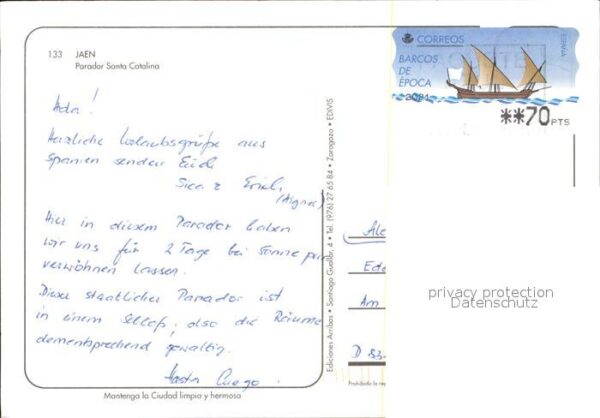 133 JAEN
Parador Santa Catalina
CORREOS
ESPAÑA
BARCOS
DE
EPOCA
**70 PTS
Hola!
Herzliche Urlaubsgrüße aus
Spanien senden Euch
Sica & Erich
(Aigner)
Hier in diesem Parador haben
wir uns für 2 Tage bei Sonne pur
verwöhnen lassen.
Dieser staatliche Parador ist
in einem Schloß, also die Räume
dementsprechend gewaltig.
Hasta luego.
Ediciones Arribas • Santiago Guallar, 4 • Tel. (976) 27 65 84 • Zaragoza • EDIVIS
Ale
Am
D 83-
privacy protection
Datenschutz
Prohibida la re
Mantenga la Ciudad limpia y hermosa